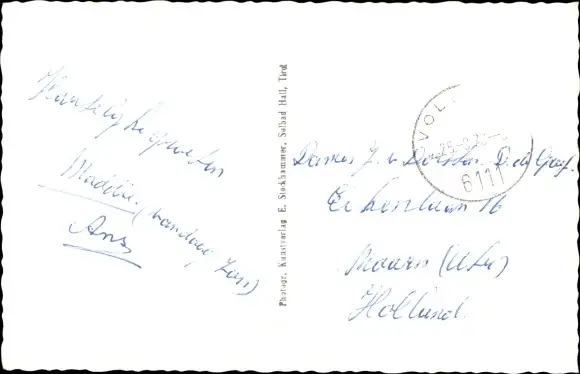 Hartelijke groeten
Madeline. (vandaag Zon)
Ans
Photogr. Kunstverlag E. Stockhammer, Solbad Hall, Tirol
VOL
6111
Dames J. v Dorsten D. de Graaf.
Eikenlaan 16
Maarn (Utr)
Holland.